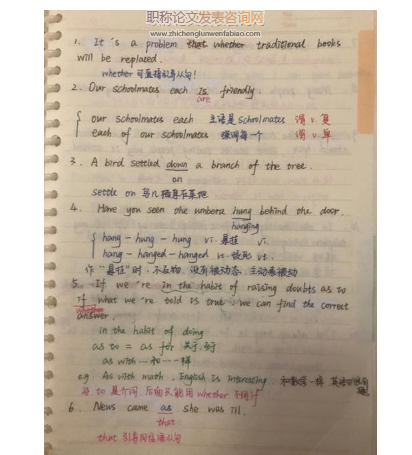 职称论文发表咨询网
www.zhichenglunwenfabiao.com
1. It's a problem that whether traditional books
will be replaced.
whether 可直接引导从句!
2. Our schoolmates each is friendly.
are
our schoolmates each 主语是 schoolmates 谓 v. 复
each of our schoolmates 强调每一个 谓 v. 单
3. A bird settled down a branch of the tree.
on
settle on 鸟儿栖息在某地
4. Have you seen the umbera hung behind the door.
hanging
hang - hung - hung vi. 悬挂 vi.
hang - hanged - hanged vt. 绞死 vt.
作"悬挂"时,不及物,没有被动态,主动表被动
5. If we're in the habit of raising doubts as to
if what we're told is true, we can find the correct
whether
answer.
in the habit of doing
as to = as for 关于,对于
as with 和…一样
e.g. As with math, English is interesting. 和数学一样
to 是介词,后面只能用 whether 不用 if
6. News came as she was ill.
that
that 引导同位语从句